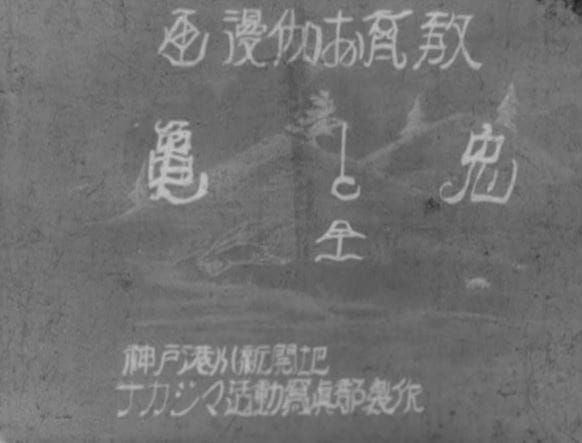 教育お伽漫画
兎と亀
全
神戸湊川新開地
ナカジマ活動寫眞部製作